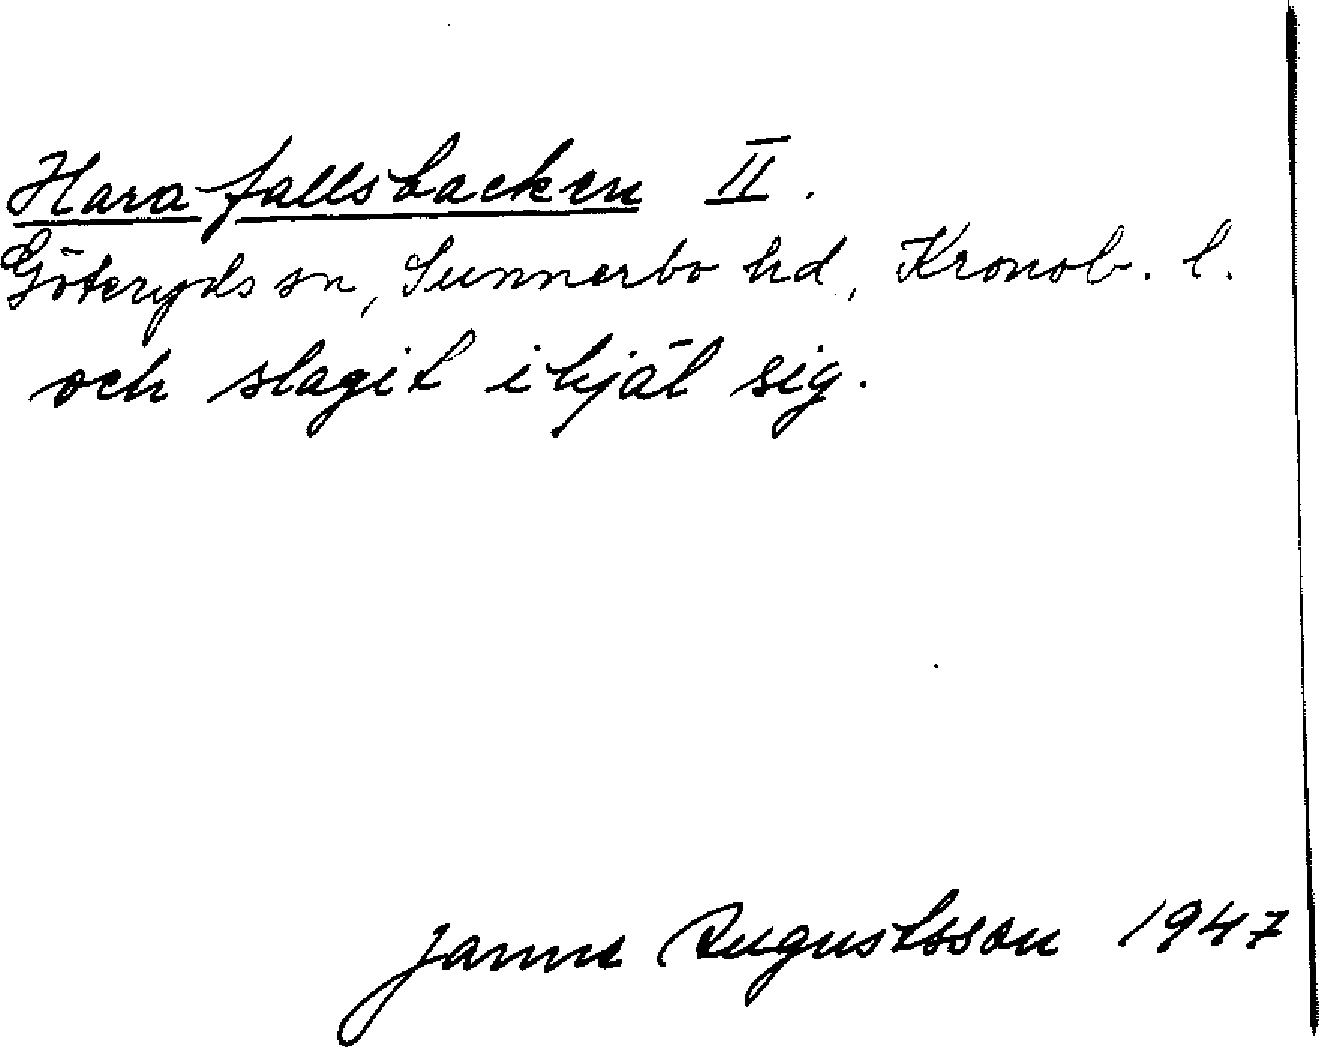 Harafallsbacken II.
Göteryds sn, Sunnerbo hd, Kronob. l.
och slagit ihjäl sig.
Janne Augustsson 1947